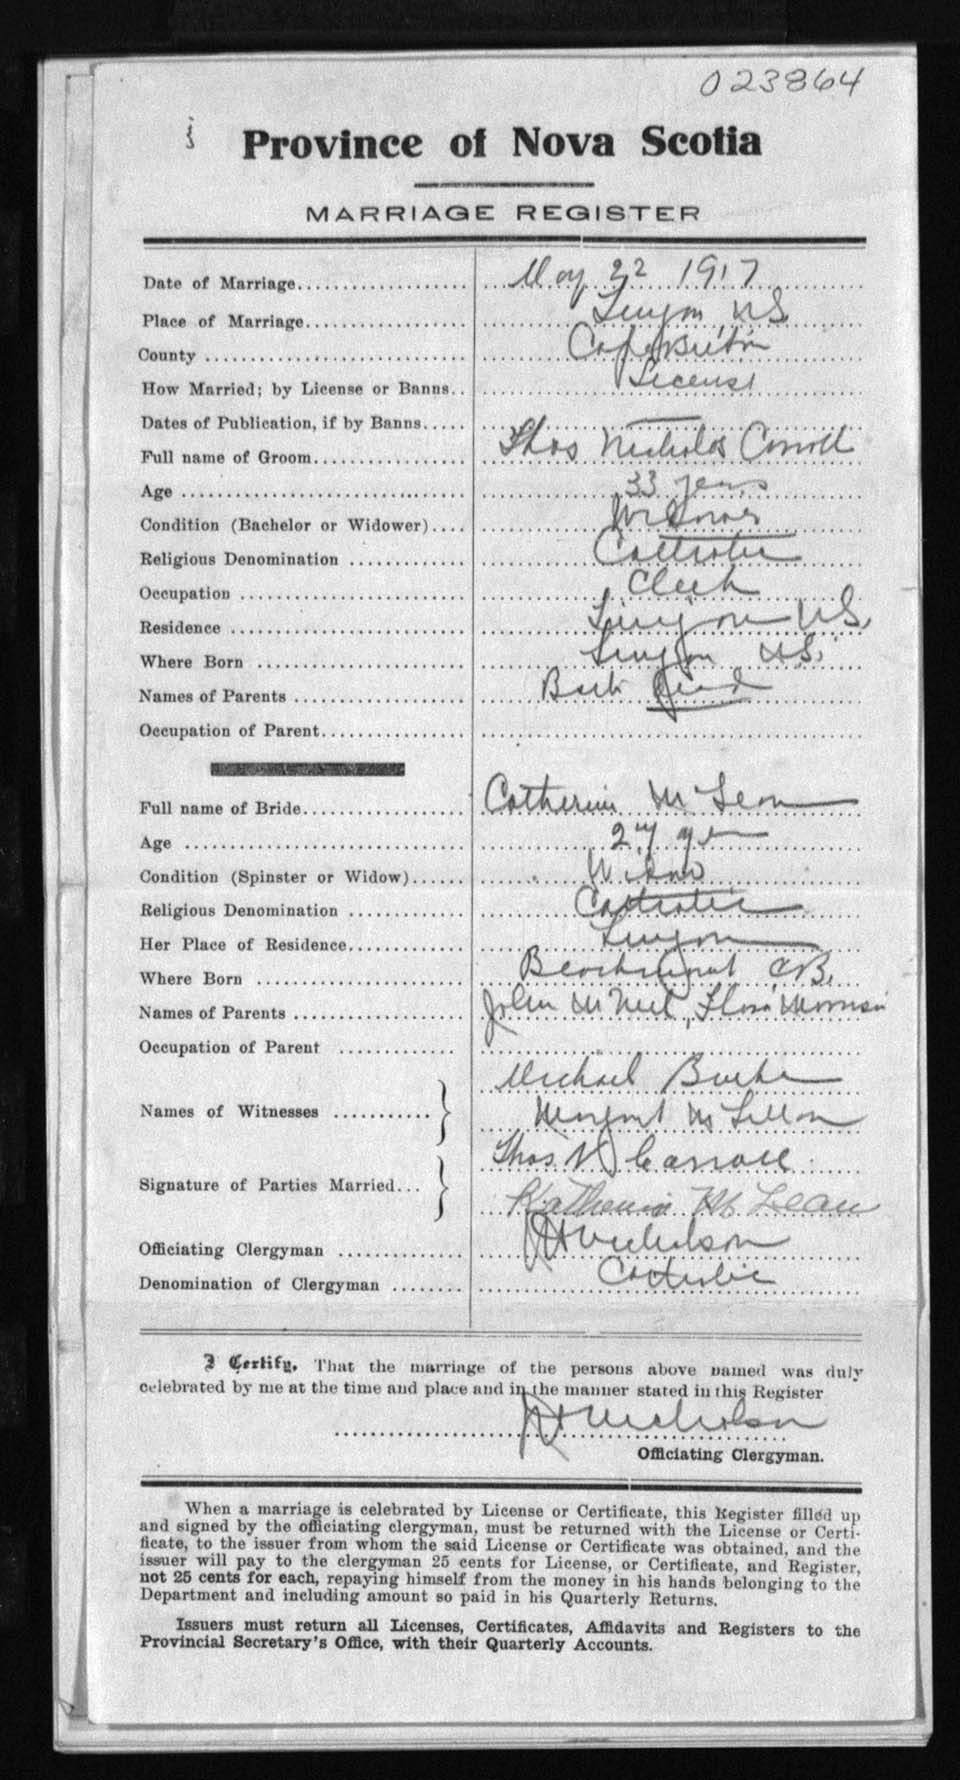 023864
Province of Nova Scotia
MARRIAGE REGISTER
Date of Marriage May 22 1917
Place of Marriage Lingan, N.S.
County Cape Breton
How Married; by License or Banns License
Dates of Publication, if by Banns
Full name of Groom Thos Nicholas Carroll
Age 33 years
Condition (Bachelor or Widower) Widower
Religious Denomination Catholic
Occupation Clerk
Residence Lingan N.S.
Where Born Lingan N.S.
Names of Parents Both Dead
Occupation of Parent
Full name of Bride Catherine McLean
Age 27 yrs
Condition (Spinster or Widow) Widow
Religious Denomination Catholic
Her Place of Residence Lingan
Where Born C.B.
Names of Parents John McNeil, Flora Morrison
Occupation of Parent
Names of Witnesses Michael Burke
Margaret Mc
Signature of Parties Married Thos N Carroll
Katherine McLean
Officiating Clergyman Nicholson
Denomination of Clergyman Catholic
I Certify, That the marriage of the persons above named was duly
celebrated by me at the time and place and in the manner stated in this Register
Nicholson
Officiating Clergyman.
When a marriage is celebrated by License or Certificate, this Register filled up
and signed by the officiating clergyman, must be returned with the License or Certi-
ficate, to the issuer from whom the said License or Certificate was obtained, and the
issuer will pay to the clergyman 25 cents for License, or Certificate, and Register,
not 25 cents for each, repaying himself from the money in his hands belonging to the
Department and including amount so paid in his Quarterly Returns.
Issuers must return all Licenses, Certificates, Affidavits and Registers to the
Provincial Secretary's Office, with their Quarterly Accounts.